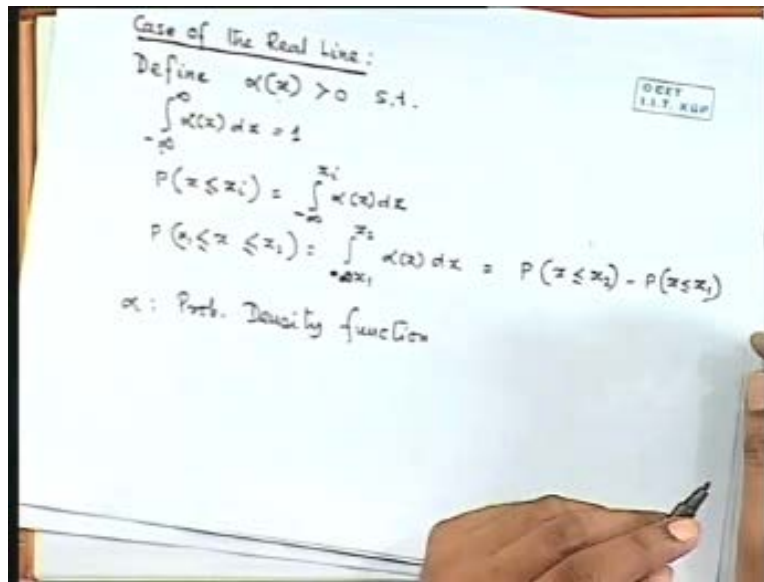 Case of the Real Line:
Define α(x) > 0 s.t.
∫_{-∞}^{∞} α(x) dx = 1
P(x ≤ x_i) = ∫_{-∞}^{x_i} α(x) dx
P(x_1 ≤ x ≤ x_2) = ∫_{x_1}^{x_2} α(x) dx = P(x ≤ x_2) - P(x ≤ x_1)
α: Prob. Density function
I.I.T. KGP